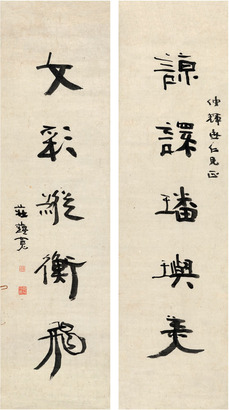 諒譯璠璵美
仲輝世仁兄正
文彩縱衡飛
莊蘊寬